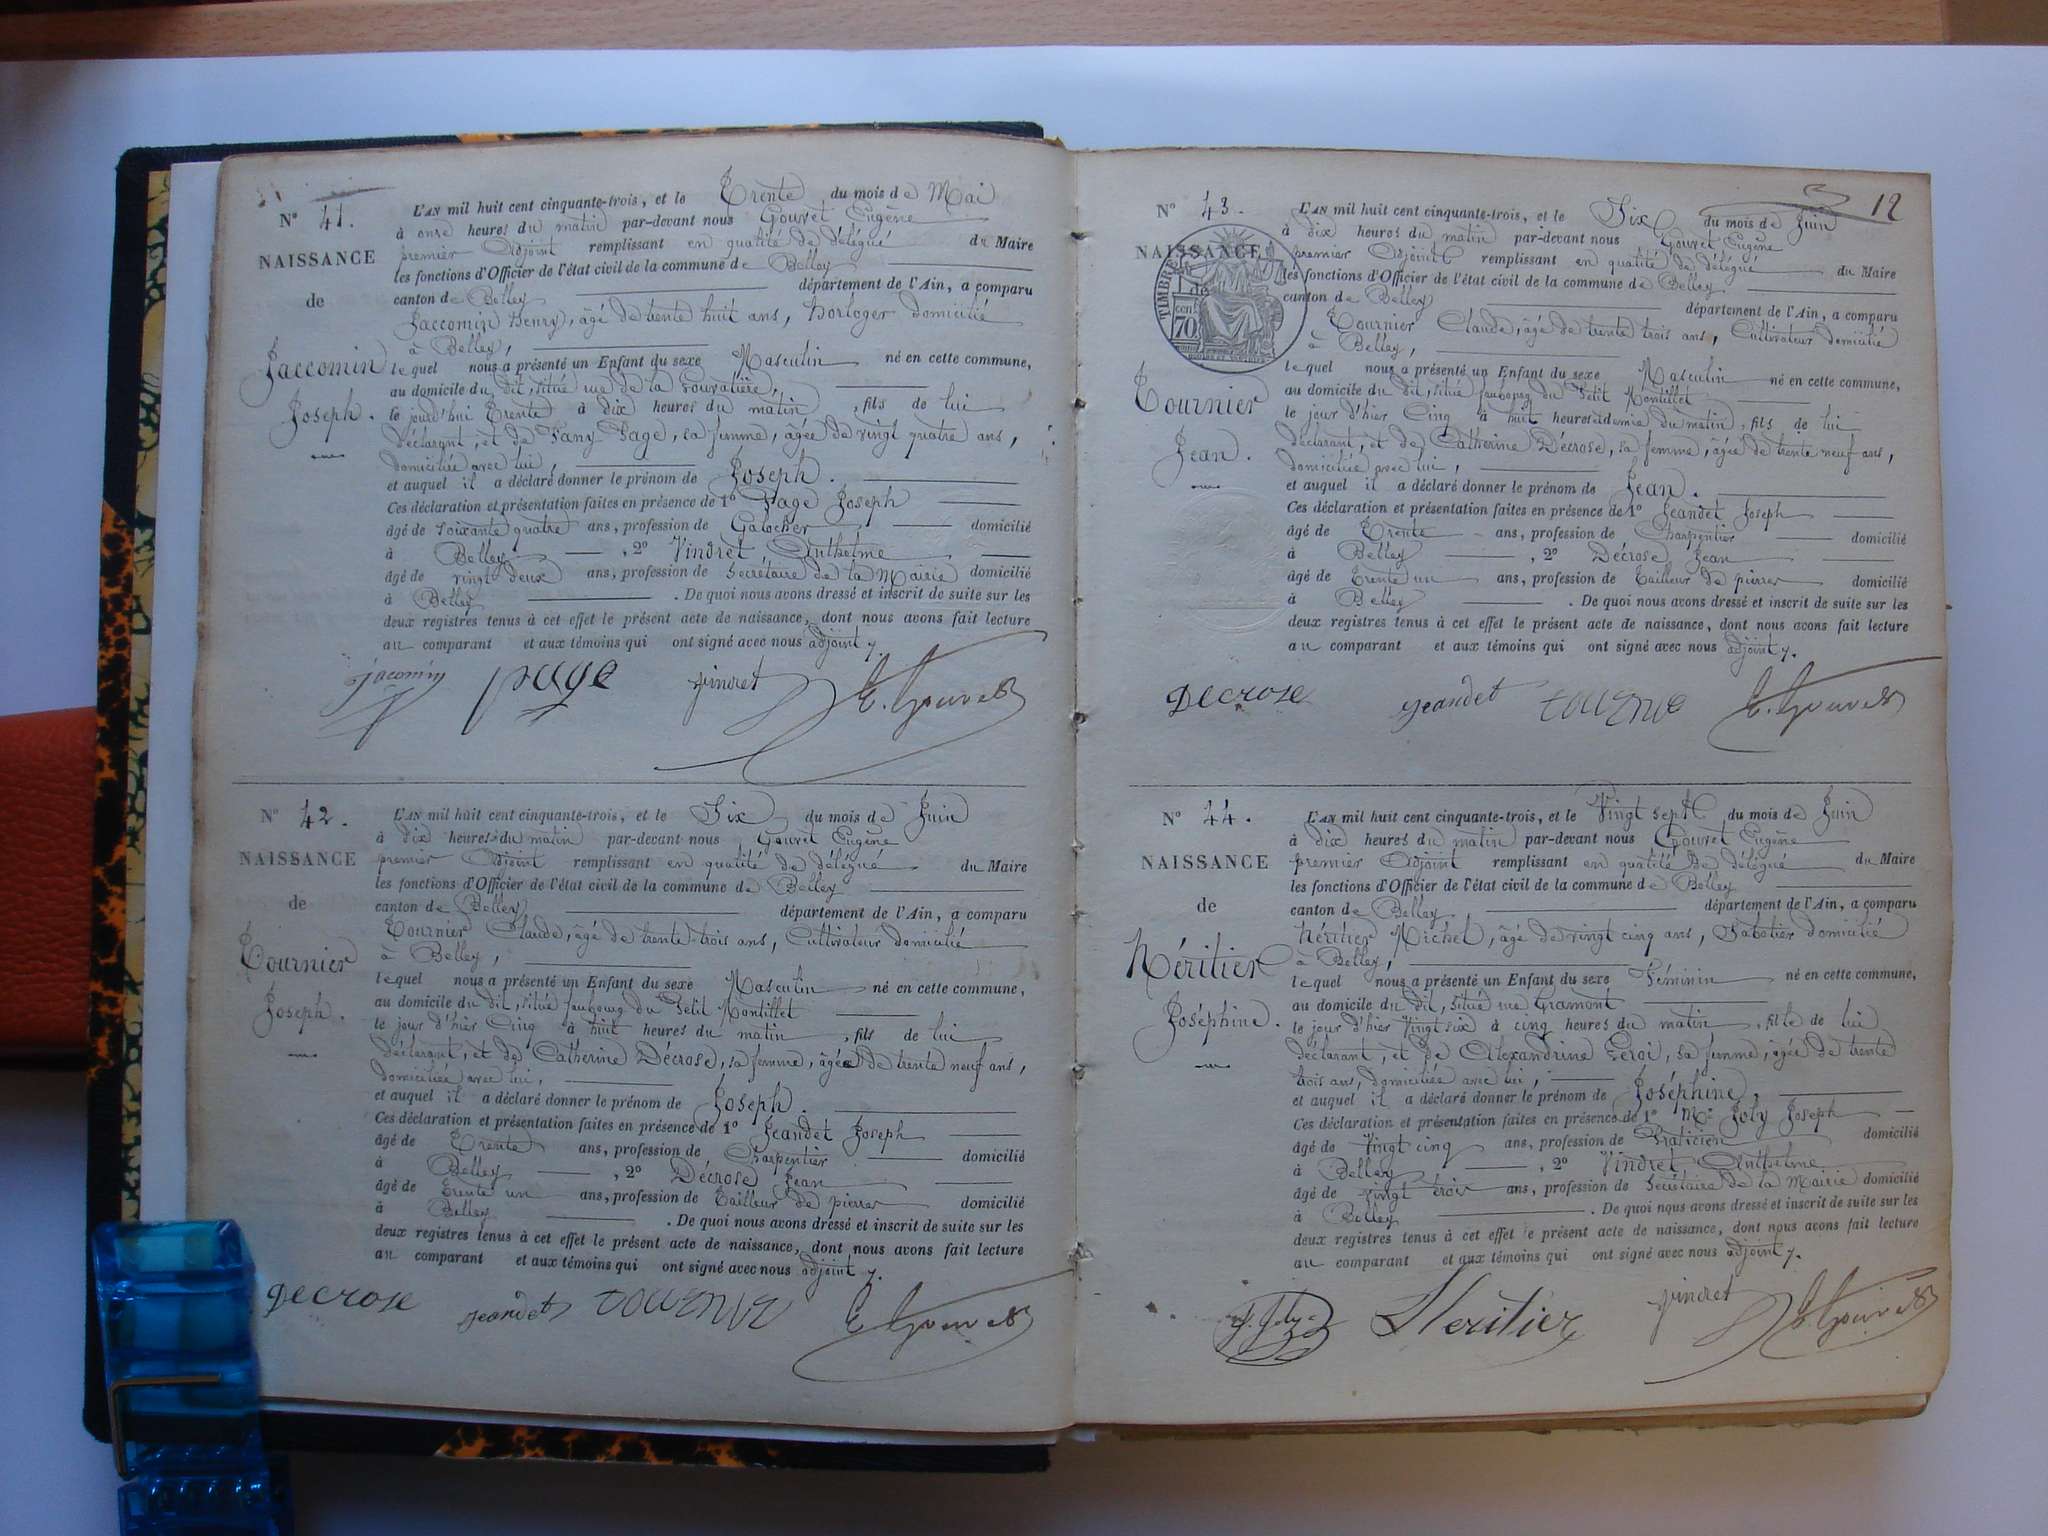 N° 41.
NAISSANCE
de
Jaccomin
Joseph.
L'AN mil huit cent cinquante-trois, et le Trente du mois de Mai
à onze heures du matin par-devant nous Gouvret Eugène
premier Adjoint remplissant en qualité de délégué du Maire
les fonctions d'Officier de l'état civil de la commune de Belley
canton de Belley département de l'Ain, a comparu
Jaccomin Henry, âgé de trente huit ans, horloger domicilié
à Belley,
lequel nous a présenté un Enfant du sexe Masculin né en cette commune,
au domicile du dit, situé rue de la
le jourd'hui Trente à dix heures du matin, fils de lui
déclarant, et de Fany Page, sa femme, âgée de vingt quatre ans,
domiciliée avec lui,
et auquel il a déclaré donner le prénom de Joseph.
Ces déclaration et présentation faites en présence de 1° Page Joseph
âgé de soixante quatre ans, profession de Galocher domicilié
à Belley, 2° Vindret Anthelme
âgé de vingt deux ans, profession de Secrétaire de la Mairie domicilié
à Belley. De quoi nous avons dressé et inscrit de suite sur les
deux registres tenus à cet effet le présent acte de naissance, dont nous avons fait lecture
au comparant et aux témoins qui ont signé avec nous adjoint
jacomin page vindret E. Gouvret
N° 42.
NAISSANCE
de
Tournier
Joseph.
L'AN mil huit cent cinquante-trois, et le Six du mois de Juin
à dix heures du matin par-devant nous Gouvret Eugène
premier Adjoint remplissant en qualité de délégué du Maire
les fonctions d'Officier de l'état civil de la commune de Belley
canton de Belley département de l'Ain, a comparu
Tournier Claude, âgé de trente-trois ans, Cultivateur domicilié
à Belley,
lequel nous a présenté un Enfant du sexe Masculin né en cette commune,
au domicile du dit, situé faubourg du Petit Montillet
le jour d'hier Cinq à huit heures du matin, fils de lui
déclarant, et de Catherine Décrose, sa femme, âgée de trente neuf ans,
domiciliée avec lui,
et auquel il a déclaré donner le prénom de Joseph.
Ces déclaration et présentation faites en présence de 1° Jeandet Joseph
âgé de Trente ans, profession de Charpentier domicilié
à Belley, 2° Décrose Jean
âgé de Trente un ans, profession de Tailleur de pierres domicilié
à Belley. De quoi nous avons dressé et inscrit de suite sur les
deux registres tenus à cet effet le présent acte de naissance, dont nous avons fait lecture
au comparant et aux témoins qui ont signé avec nous adjoint
Decrose jeandet E. Gouvret
12
N° 43.
NAISSANCE
de
TIMBRE
70
Tournier
Jean.
L'AN mil huit cent cinquante-trois, et le Six du mois de Juin
à dix heures du matin par-devant nous Gouvret Eugène
premier Adjoint remplissant en qualité de délégué du Maire
les fonctions d'Officier de l'état civil de la commune de Belley
canton de Belley département de l'Ain, a comparu
Tournier Claude, âgé de trente trois ans, Cultivateur domicilié
à Belley,
lequel nous a présenté un Enfant du sexe Masculin né en cette commune,
au domicile du dit, situé faubourg du Petit Montillet
le jour d'hier Cinq à huit heures et demie du matin, fils de lui
déclarant, et de Catherine Décrose, sa femme, âgée de trente neuf ans,
domiciliée avec lui,
et auquel il a déclaré donner le prénom de Jean.
Ces déclaration et présentation faites en présence de 1° Jeandet Joseph
âgé de Trente ans, profession de Charpentier domicilié
à Belley, 2° Décrose Jean
âgé de Trente un ans, profession de Tailleur de pierres domicilié
à Belley. De quoi nous avons dressé et inscrit de suite sur les
deux registres tenus à cet effet le présent acte de naissance, dont nous avons fait lecture
au comparant et aux témoins qui ont signé avec nous adjoint
Decrose jeandet E. Gouvret
N° 44.
NAISSANCE
de
Héritier
Joséphine.
L'AN mil huit cent cinquante-trois, et le Vingt sept du mois de Juin
à dix heures du matin par-devant nous Gouvret Eugène
premier Adjoint remplissant en qualité de délégué du Maire
les fonctions d'Officier de l'état civil de la commune de Belley
canton de Belley département de l'Ain, a comparu
Héritier Michel, âgé de vingt cinq ans, Sabotier domicilié
à Belley,
lequel nous a présenté un Enfant du sexe Féminin né en cette commune,
au domicile du dit, situé rue Gramont
le jour d'hier vingt six à cinq heures du matin, fille de lui
déclarant, et de Alexandrine Leroi, sa femme, âgée de trente
trois ans, domiciliée avec lui,
et auquel il a déclaré donner le prénom de Joséphine.
Ces déclaration et présentation faites en présence de 1° Mr Joly Joseph
âgé de vingt cinq ans, profession de Praticien domicilié
à Belley, 2° Vindret Anthelme
âgé de vingt trois ans, profession de Secrétaire de la Mairie domicilié
à Belley. De quoi nous avons dressé et inscrit de suite sur les
deux registres tenus à cet effet le présent acte de naissance, dont nous avons fait lecture
au comparant et aux témoins qui ont signé avec nous adjoint
J. Joly Heritier vindret E. Gouvret